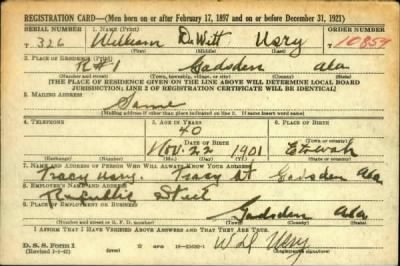 REGISTRATION CARD—(Men born on or after February 17, 1897 and on or before December 31, 1921)
SERIAL NUMBER 1. NAME (Print) ORDER NUMBER
T 326 William DeWitt Usry T 10859
(First) (Middle) (Last)
2. PLACE OF RESIDENCE (Print)
R#1 Gadsden Ala
(Number and street) (Town, township, village, or city) (County) (State)
[THE PLACE OF RESIDENCE GIVEN ON THE LINE ABOVE WILL DETERMINE LOCAL BOARD
JURISDICTION; LINE 2 OF REGISTRATION CERTIFICATE WILL BE IDENTICAL]
3. MAILING ADDRESS
Same
[Mailing address if other than place indicated on line 2. If same insert word same]
4. TELEPHONE 5. AGE IN YEARS 6. PLACE OF BIRTH
40
DATE OF BIRTH (Town or county)
Nov. 22 1901 Etowah
(Exchange) (Number) (Mo.) (Day) (Yr.) (State or country)
7. NAME AND ADDRESS OF PERSON WHO WILL ALWAYS KNOW YOUR ADDRESS
Tracy Usry. Tracy St Gadsden Ala
8. EMPLOYER'S NAME AND ADDRESS
Republic Steel
9. PLACE OF EMPLOYMENT OR BUSINESS
Gadsden Ala
(Number and street or R. F. D. number) (Town) (County) (State)
I AFFIRM THAT I HAVE VERIFIED ABOVE ANSWERS AND THAT THEY ARE TRUE.
D. S. S. Form 1 W D Usry
(Registrant's signature)